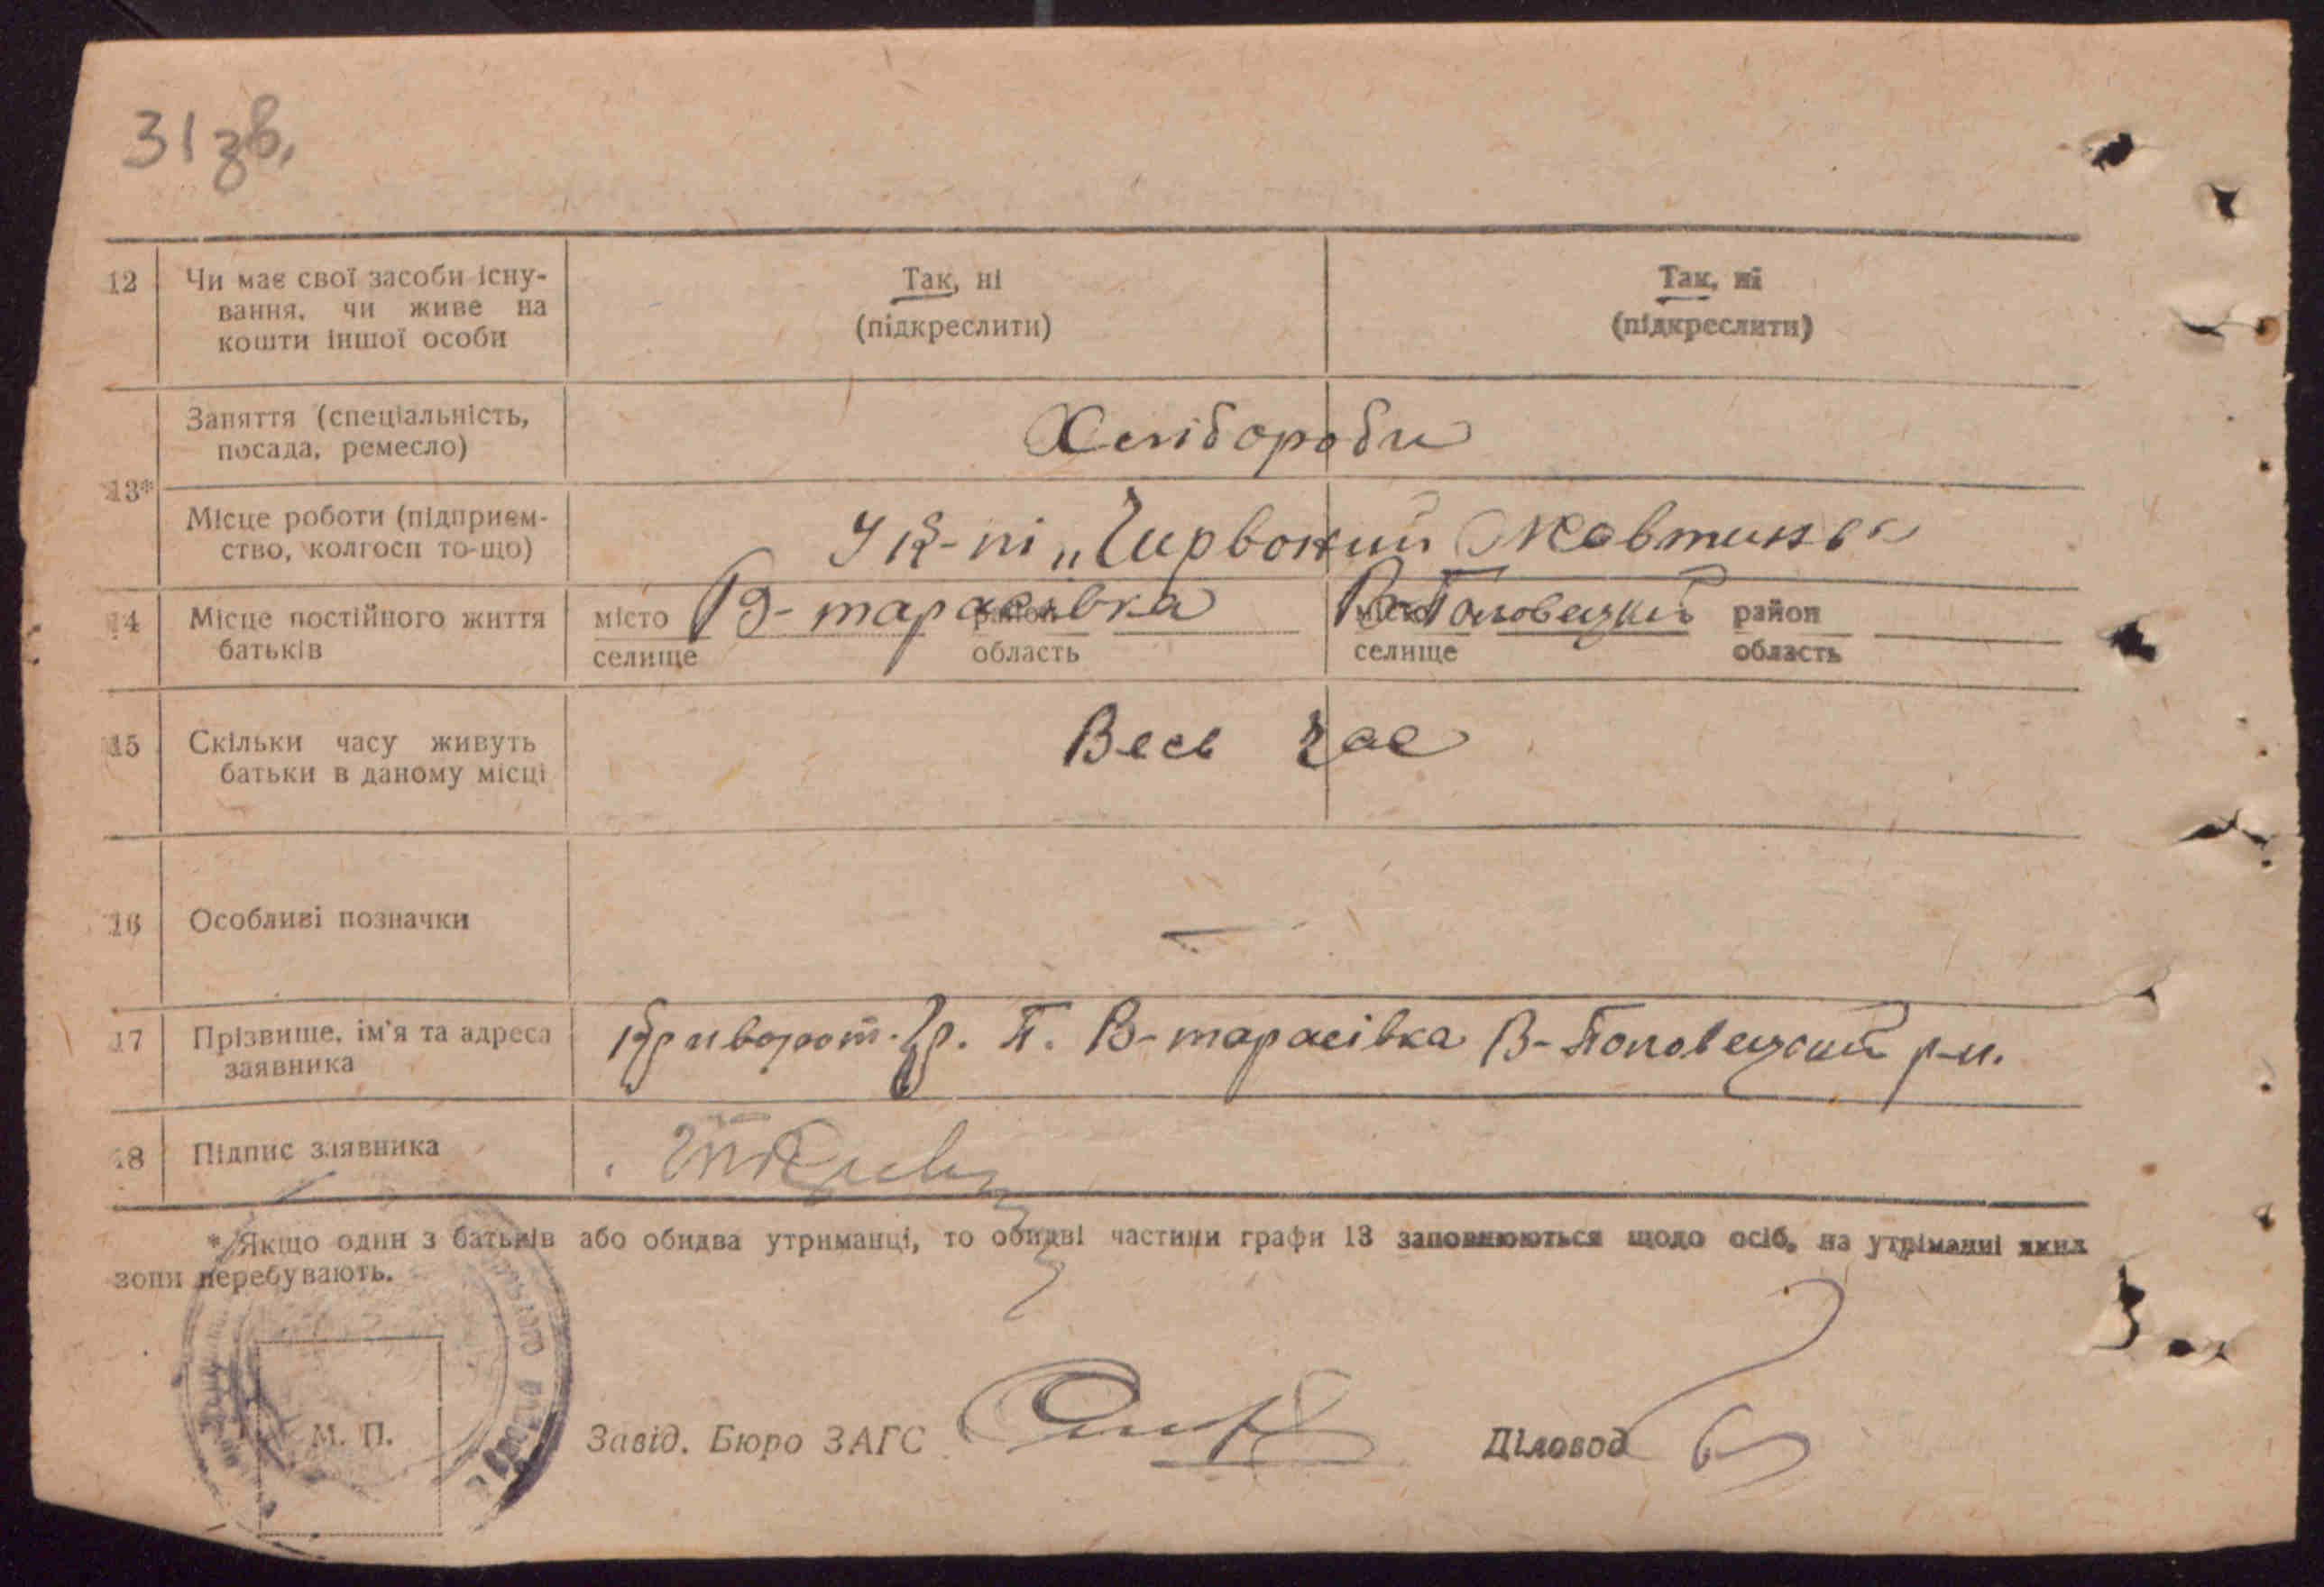 31 зв.
12 Чи має свої засоби існу-
вання, чи живе на
кошти іншої особи
Так, ні
(підкреслити)
Так, ні
(підкреслити)
13*
Заняття (спеціальність,
посада, ремесло)
Хлібороби
Місце роботи (підприєм-
ство, колгосп то-що)
У к-пі „Чирвоний Жовтинь"
14 Місце постійного життя
батьків
місто В-тарасівка район
селище область
місто В-Поповецький район
селище область
15 Скільки часу живуть
батьки в даному місці
Весь час
16 Особливі позначки
—
17 Прізвище, ім'я та адреса
заявника
Криворот. Гр. П. В-тарасівка В-Поповецький р-н.
18 Підпис заявника
* Якщо один з батьків або обидва утриманці, то обидві частини графи 13 заповнюються щодо осіб, на утріманні яких
вони перебувають.
М. П.
Завід. Бюро ЗАГС
Діловод